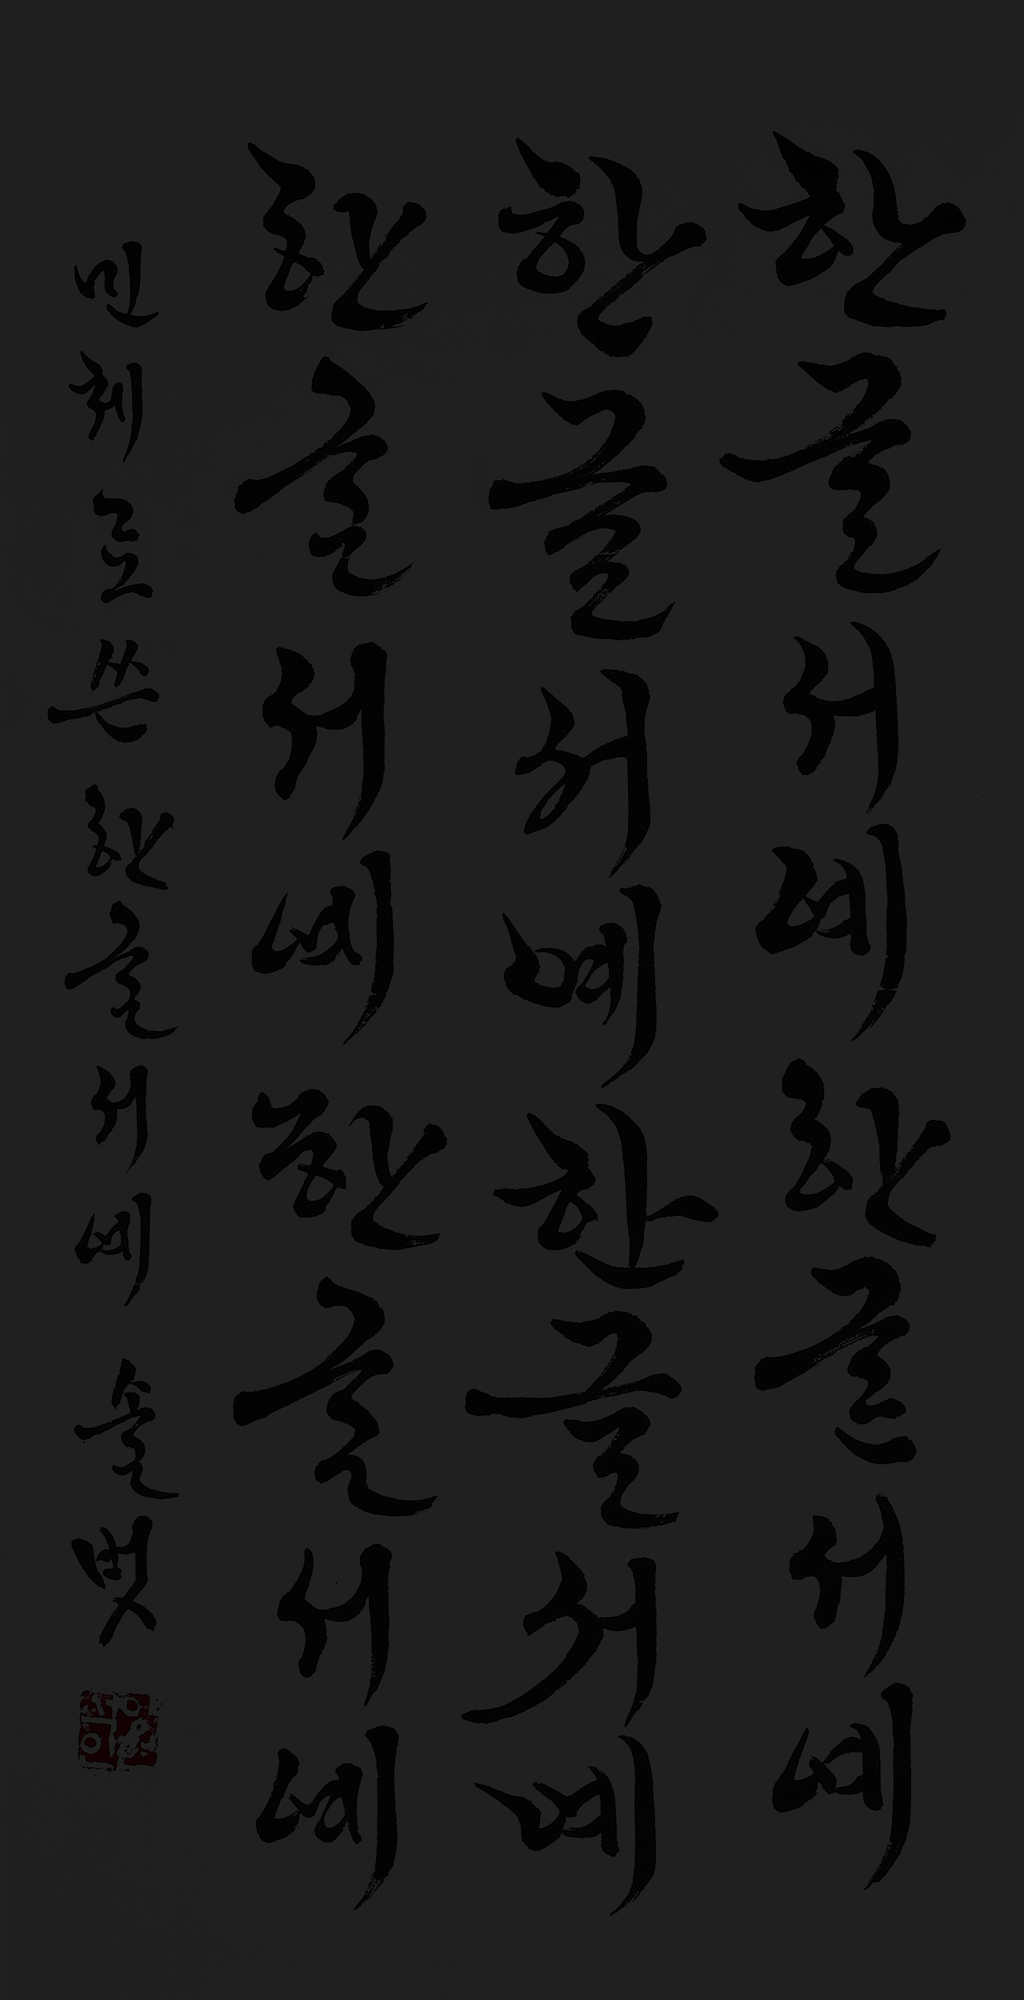 한글서예한글서예
한글서예한글서예
한글서예한글서예
민체로쓴한글서예 솔벗